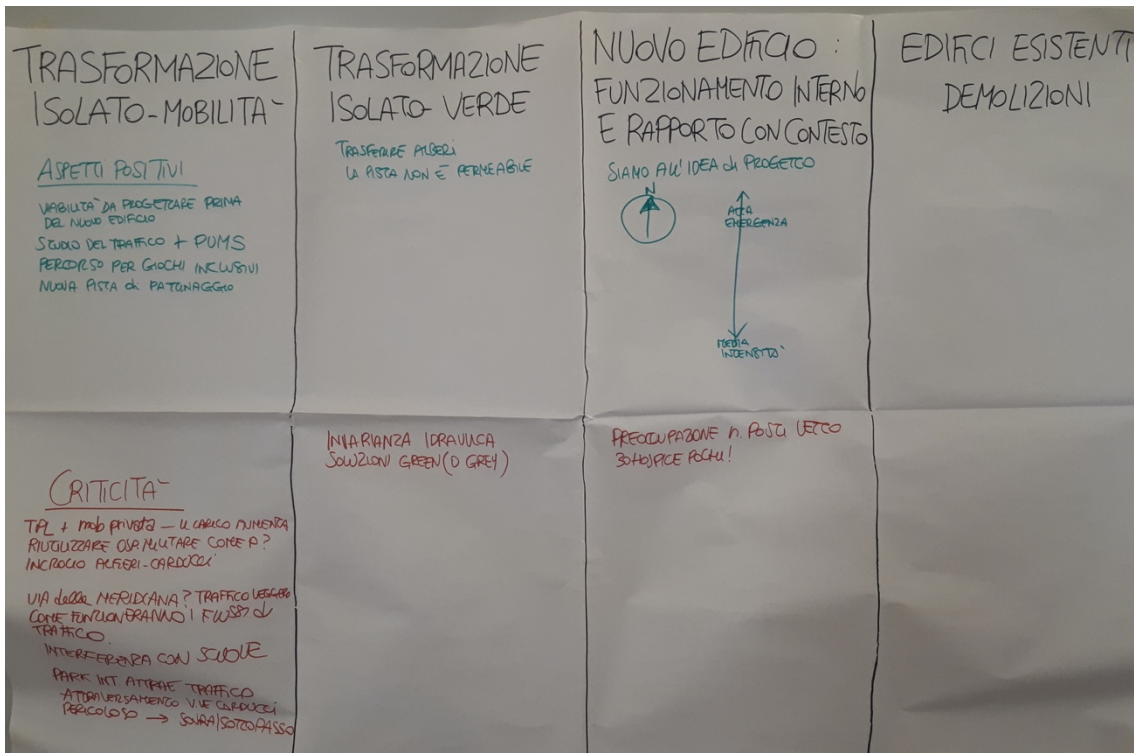 TRASFORMAZIONE
ISOLATO-MOBILITÀ
ASPETTI POSITIVI
VIABILITÀ DA PROGETTARE PRIMA
DEL NUOVO EDIFICIO
STUDIO DEL TRAFFICO + PUMS
PERCORSO PER GIOCHI INCLUSIVI
NUOVA PISTA di PATTINAGGIO
CRITICITÀ
TPL + mob privata — IL CARICO AUMENTA
RIUTILIZZARE OSP. MILITARE COME P?
INCROCIO ALFIERI-CARDUCCI
VIA della MERIDIANA? TRAFFICO LEGGERO
COME FUNZIONERANNO I FLUSSI di
TRAFFICO.
INTERFERENZA CON SCUOLE
PARK INT. ATTRAE TRAFFICO
ATTRAVERSAMENTO V.LE CARDUCCI
PERICOLOSO → SOVRA/SOTTOPASSO
TRASFORMAZIONE
ISOLATO-VERDE
TRASFERIRE ALBERI
LA PISTA NON È PERMEABILE
INVARIANZA IDRAULICA
SOLUZIONI GREEN (O GREY)
NUOVO EDIFICIO :
FUNZIONAMENTO INTERNO
E RAPPORTO CON CONTESTO
SIAMO ALL'IDEA di PROGETTO
N
ALTA
EMERGENZA
MEDIA
INTENSITÀ
PREOCCUPAZIONE n. POSTI LETTO
30 HOSPICE POCHI!
EDIFICI ESISTENTI
DEMOLIZIONI